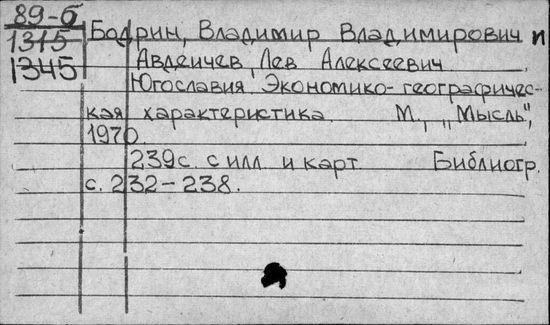 89-б
1315
1345
Бодрин, Владимир Владимирович и
Авдеичев, Лев Алексеевич
Югославия. Экономико-географичес-
кая характеристика. М., „Мысль",
1970
239с. с илл. и карт. Библиогр.
с. 232-238.